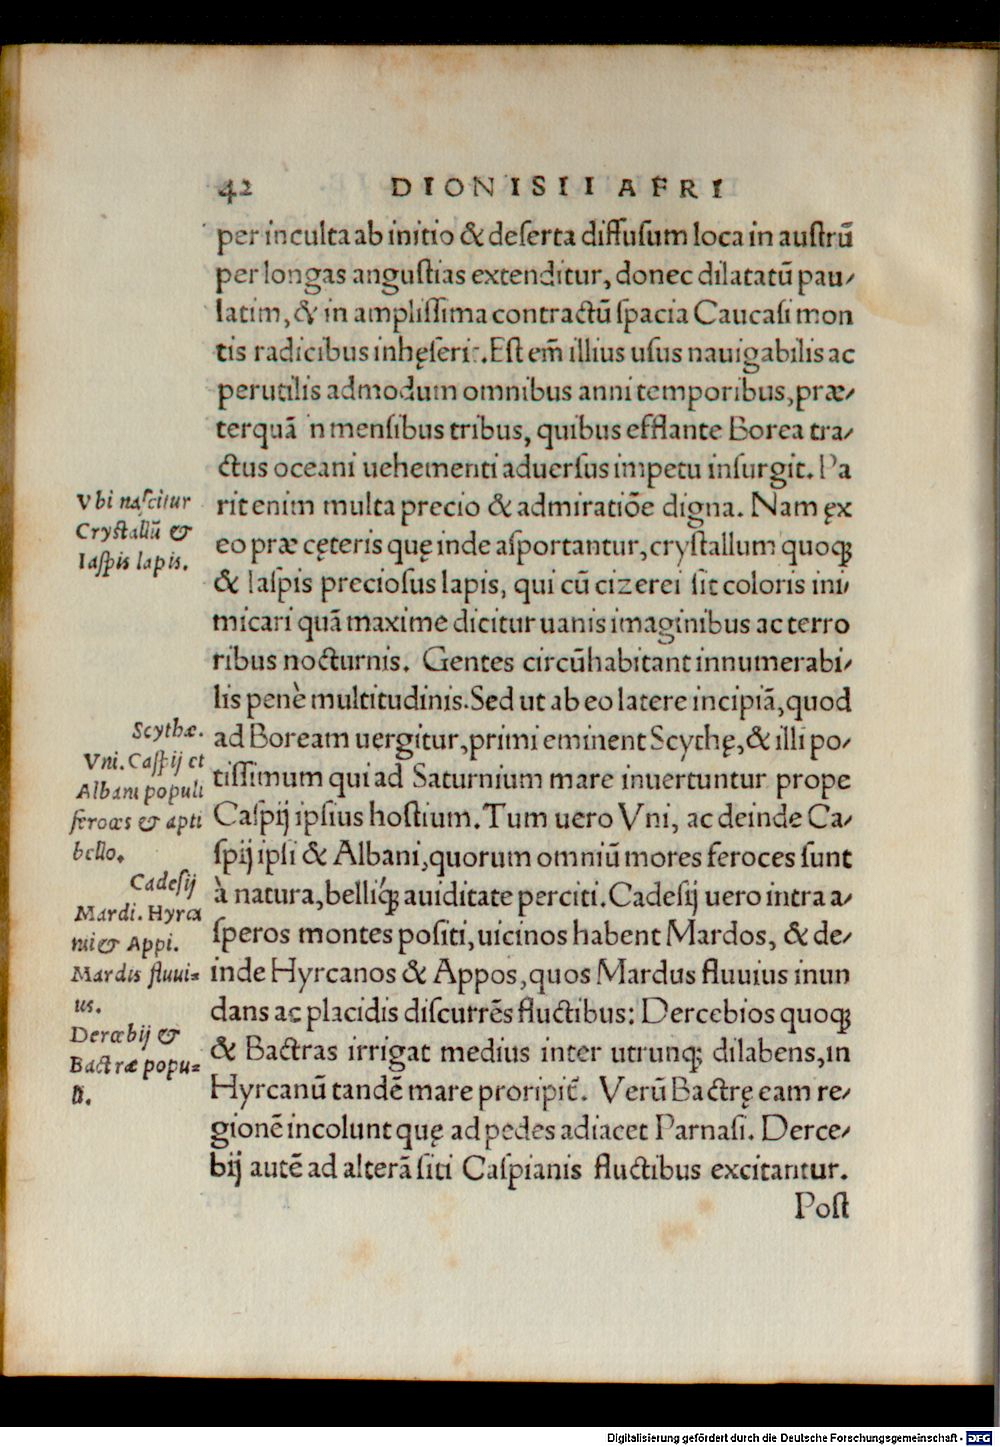 42 DIONISII AFRI
per inculta ab initio & deserta diffusum loca in austrū
per longas angustias extenditur, donec dilatatū pau-
latim, & in amplissima contractū spacia Caucasi mon
tis radicibus inhęserit. Est em̄ illius usus nauigabilis ac
perutilis admodum omnibus anni temporibus, præ-
terquā in mensibus tribus, quibus efflante Borea tra-
ctus oceani uehementi aduersus impetu insurgit. Pa
rit enim multa precio & admiratiōe digna. Nam ęx
eo præ cęteris quę inde asportantur, crystallum quoq;
& Iaspis preciosus lapis, qui cū cizerei sit coloris ini-
micari quā maxime dicitur uanis imaginibus ac terro
ribus nocturnis. Gentes circūhabitant innumerabi-
lis penè multitudinis. Sed ut ab eo latere incipiā, quod
ad Boream uergitur, primi eminent Scythę, & illi po-
tissimum qui ad Saturnium mare inuertuntur prope
Caspij ipsius hostium. Tum uero Vni, ac deinde Ca-
spij ipsi & Albani, quorum omniū mores feroces sunt
à natura, belliq́; auiditate perciti. Cadesij uero intra a-
speros montes positi, uicinos habent Mardos, & de-
inde Hyrcanos & Appos, quos Mardus fluuius inun
dans ac placidis discurrēs fluctibus: Dercebios quoq;
& Bactras irrigat medius inter utrunq; dilabens, in
Hyrcanū tandē mare proripit̄. Verū Bactrę eam re-
gionē incolunt quę ad pedes adiacet Parnasi. Derce-
bij autē ad alterā siti Caspianis fluctibus excitantur.
Post
Vbi nascitur
Crystallū &
Iaspis lapis.
Scythæ.
Vni. Caspij et
Albani populi
feroces & apti
bello.
Cadesij
Mardi. Hyrca
ni & Appi.
Mardis fluui=
us.
Dercebij &
Bactræ popu=
li.
Digitalisierung gefördert durch die Deutsche Forschungsgemeinschaft - DFG